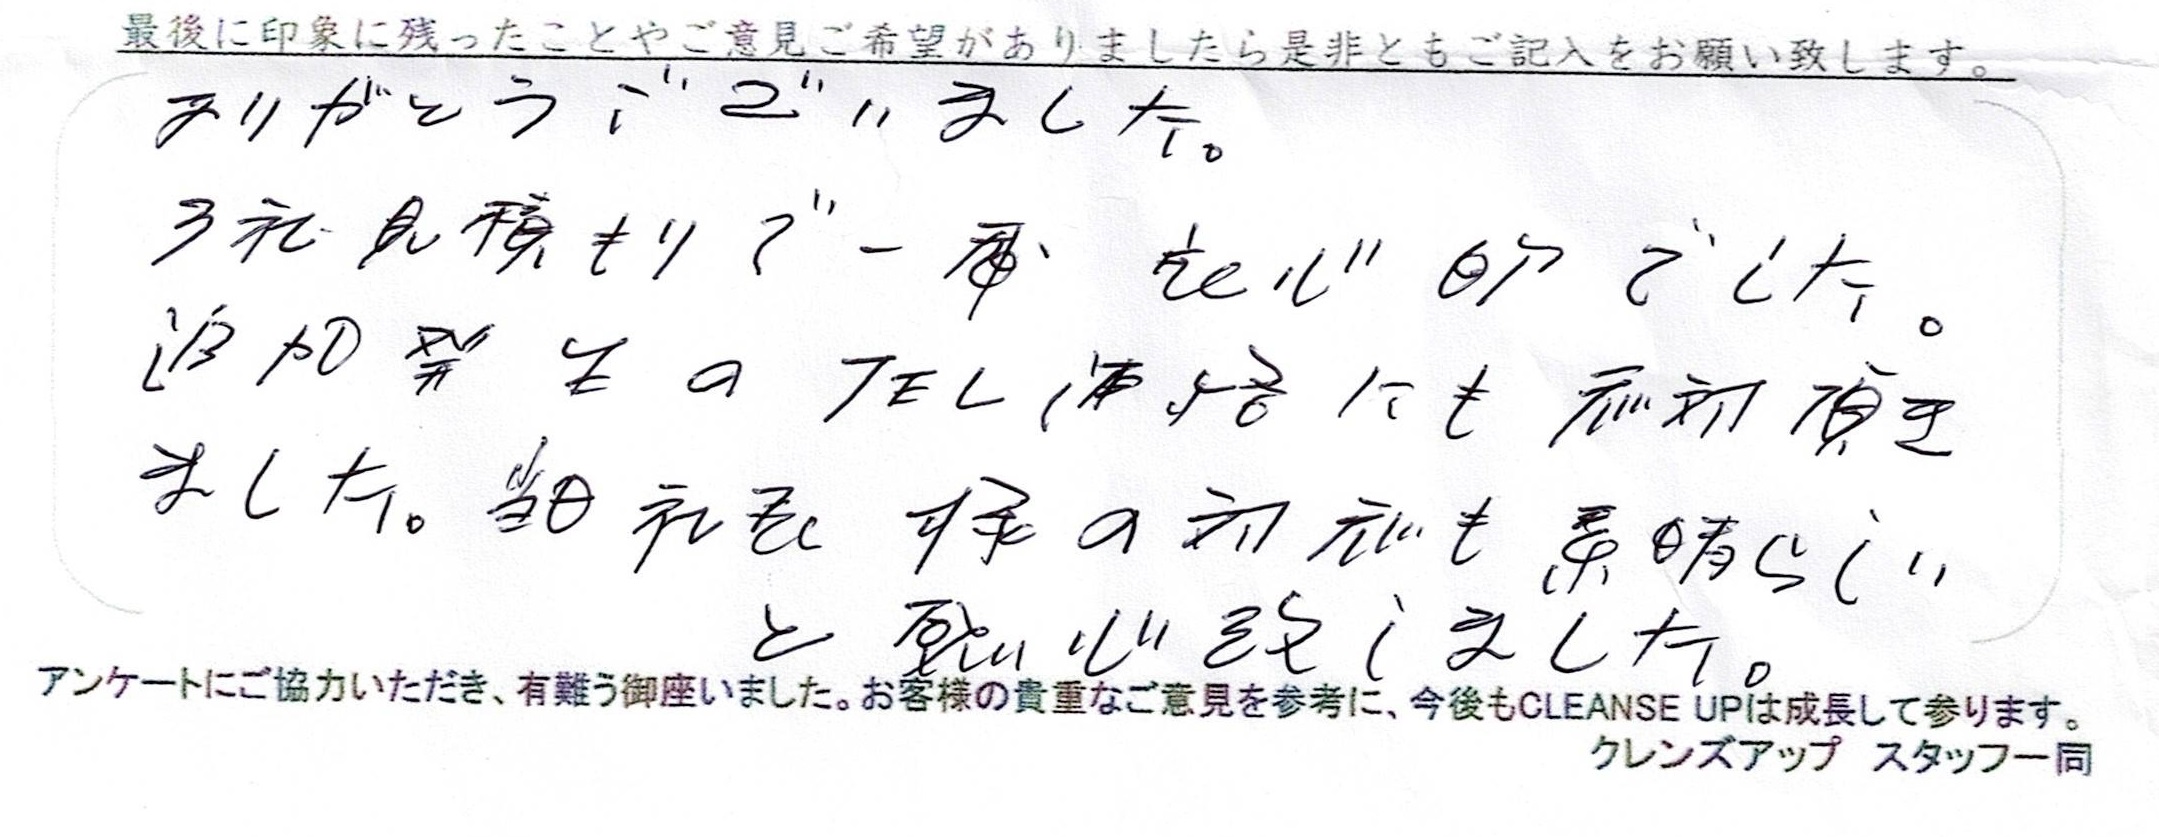 最後に印象に残ったことやご意見ご希望がありましたら是非ともご記入をお願い致します。
ありがとうございました。
3社見積もりで一番良心的でした。
追加発生のTEL連絡にも応対頂き
ました。当日社員様の対応も素晴らしい
と感心致しました。
アンケートにご協力いただき、有難う御座いました。お客様の貴重なご意見を参考に、今後もCLEANSE UPは成長して参ります。
クレンズアップ スタッフ一同